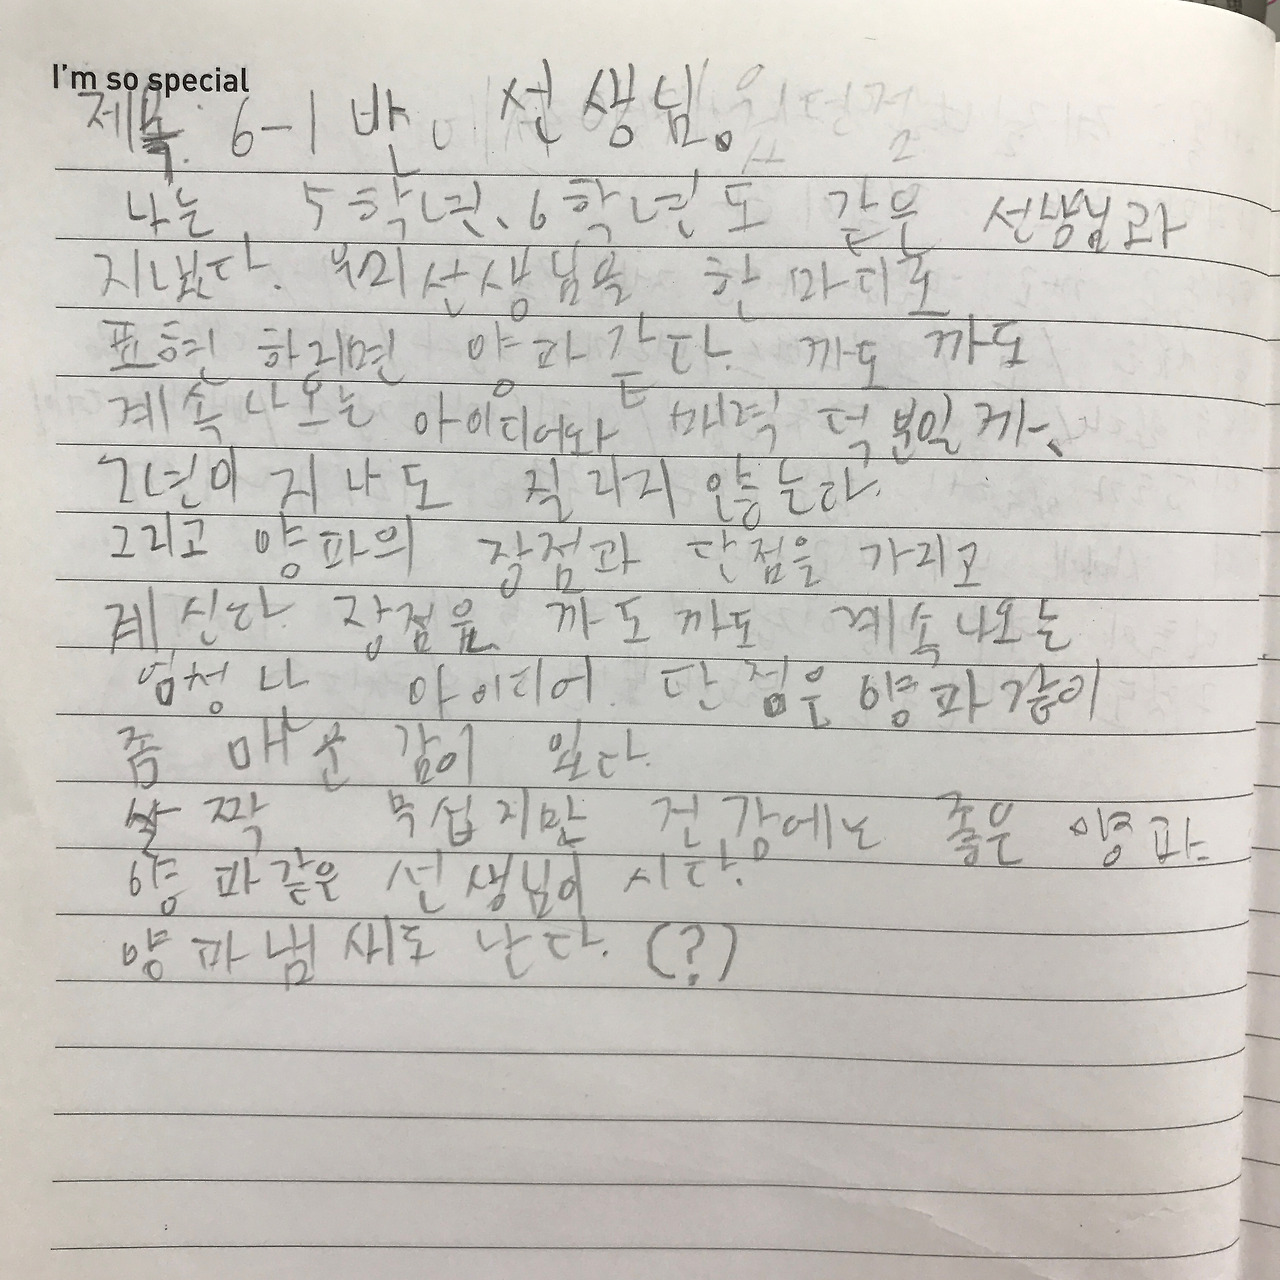 I'm so special
제목: 6-1 반. 선생님.
나는 5학년, 6학년도 같은 선생님과
지냈다. 선생님을 한마디로
표현 하려면 양파 같다. 까도 까도
계속 나오는 아이디어와 매력 덕분일께,
2년이 지나도 질리지 않는다.
그리고 양파의 장점과 단점을 가리고
계신다. 장점은 까도 까도 계속 나오는
엄청나 아이디어. 단점은 양파같이
좀 매운 감이 있다.
살짝 무섭지만 건강에는 좋은 양파
양파같은 선생님이시다.
양파 냄새도 난다. (?)